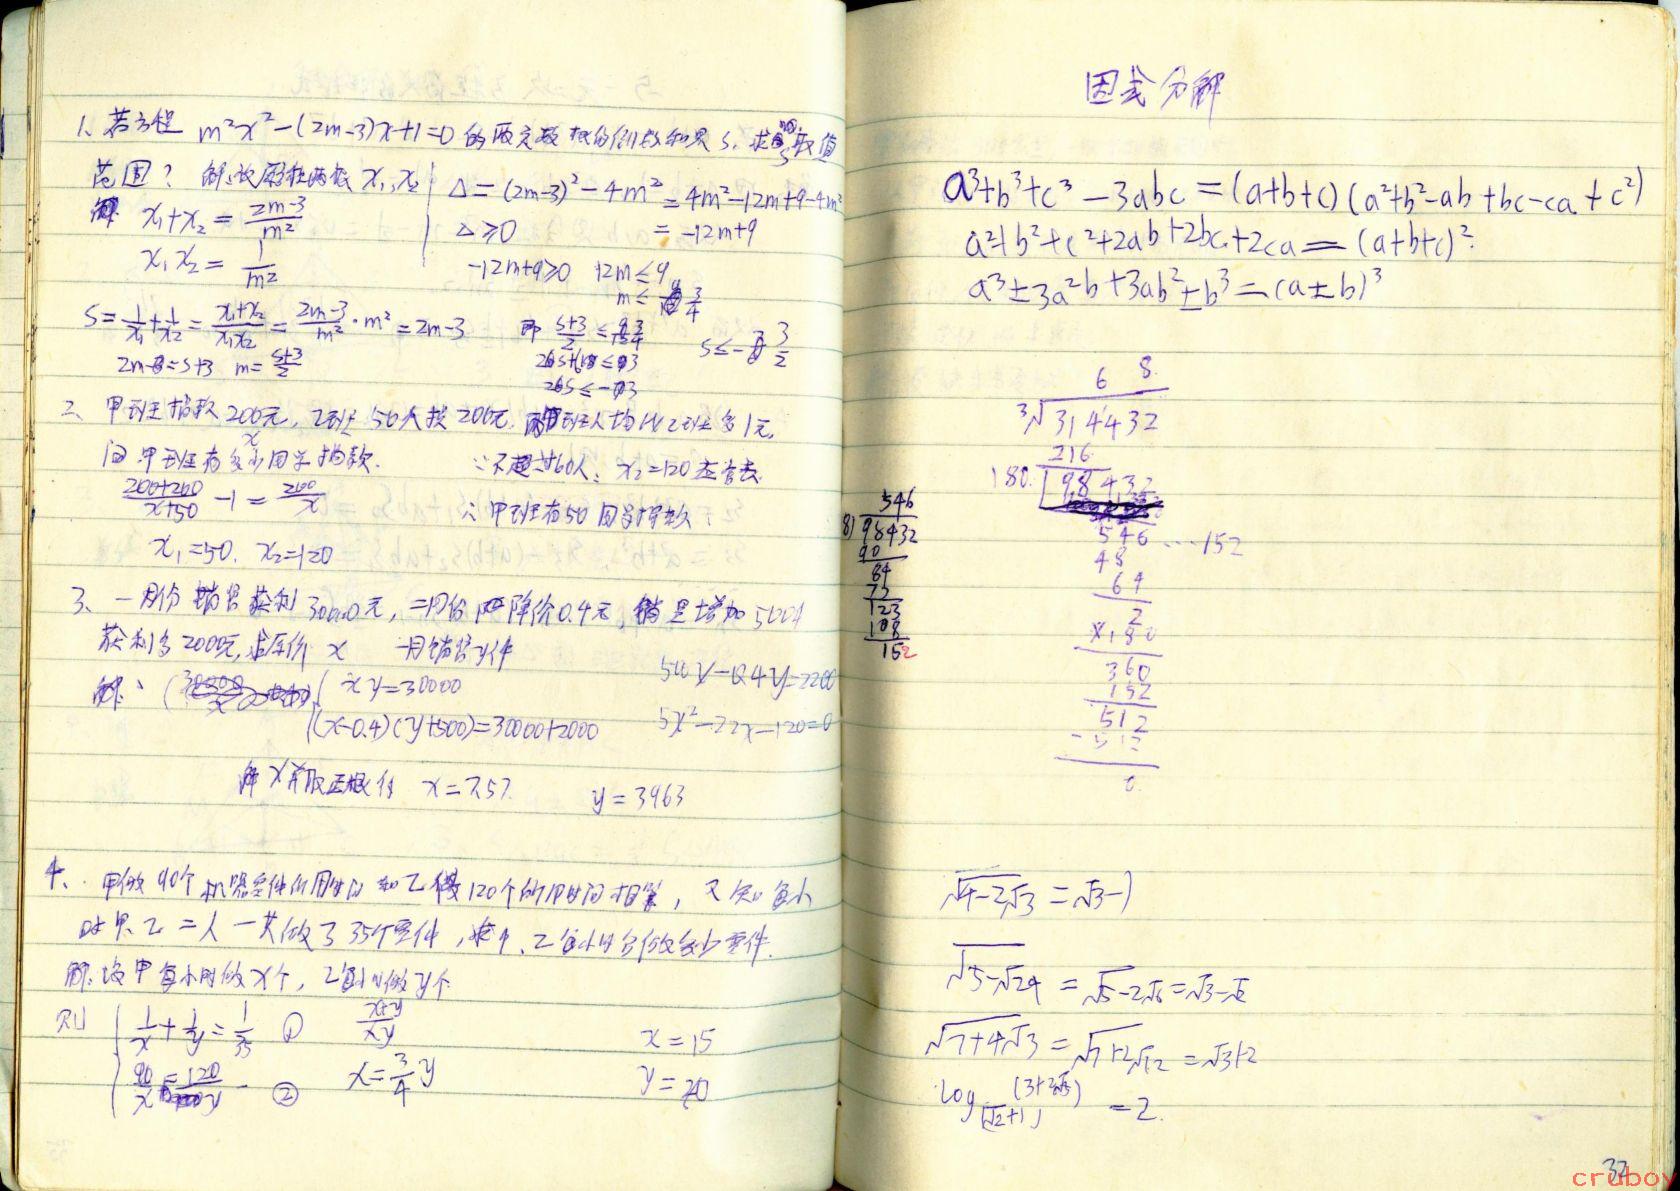 1、若方程 m²x²-(2m-3)x+1=0 的两实数根的倒数和是 S、求S取值
范围? 解:设原方程两根 x₁、x₂
x₁+x₂ = (2m-3)/m²
x₁x₂ = 1/m²
Δ = (2m-3)²-4m² = 4m²-12m+9-4m²
Δ≥0 = -12m+9
-12m+9≥0 12m≤9
m≤ 3/4
S = 1/x₁+1/x₂ = (x₁+x₂)/(x₁x₂) = (2m-3)/m² · m² = 2m-3
2m=S+3 m=(S+3)/2
即 (S+3)/2 ≤ 3/4
S≤-3/2
二、甲班捐款200元,乙班50人捐200元,甲班人均比乙班多1元,
问甲班有多少同学捐款.
x
(200+200)/(x+50) -1 = 200/x
x₁=50. x₂=120
∵不超过60人、x₂=120应舍去
∴甲班有50同学捐款
3、一月份销售获利30000元,二月份降价0.4元 销量增加500个
获利多2000元,求原价 x 一月销售y件
解: { xy=30000
(x-0.4)(y+500)=30000+2000
500x-0.4y=2200
5x²-22x-120=0
解x并取正根得 x=7.57. y=3963
4、甲做90个机器零件所用时间和乙做120个的所用时间相等,又知每小
时甲、乙二人一共做了35个零件,求甲、乙每小时各做多少零件.
解:设甲每小时做x个,乙每小时做y个
则 { 1/x+1/y=1/35 ①
90/x=120/y ②
(x+y)/xy
x=3/4 y
x=15
y=20
因式分解
a³+b³+c³-3abc=(a+b+c)(a²+b²-ab+bc-ca+c²)
a²+b²+c²+2ab+2bc+2ca=(a+b+c)².
a³±3a²b+3ab²±b³=(a±b)³
6 8.
³√314432
216
180. 98432
546 ...152
48
64
2
×180
360
152
512
-512
0.
546
8)98432
90
84
72
123
108
152
√4-2√3 = √3-1
√5-√24 = √5-2√6 = √3-√2
√7+4√3 = √7+2√12 = √3+2
log(√2+1) (3+2√2) =2.
32
cruboy